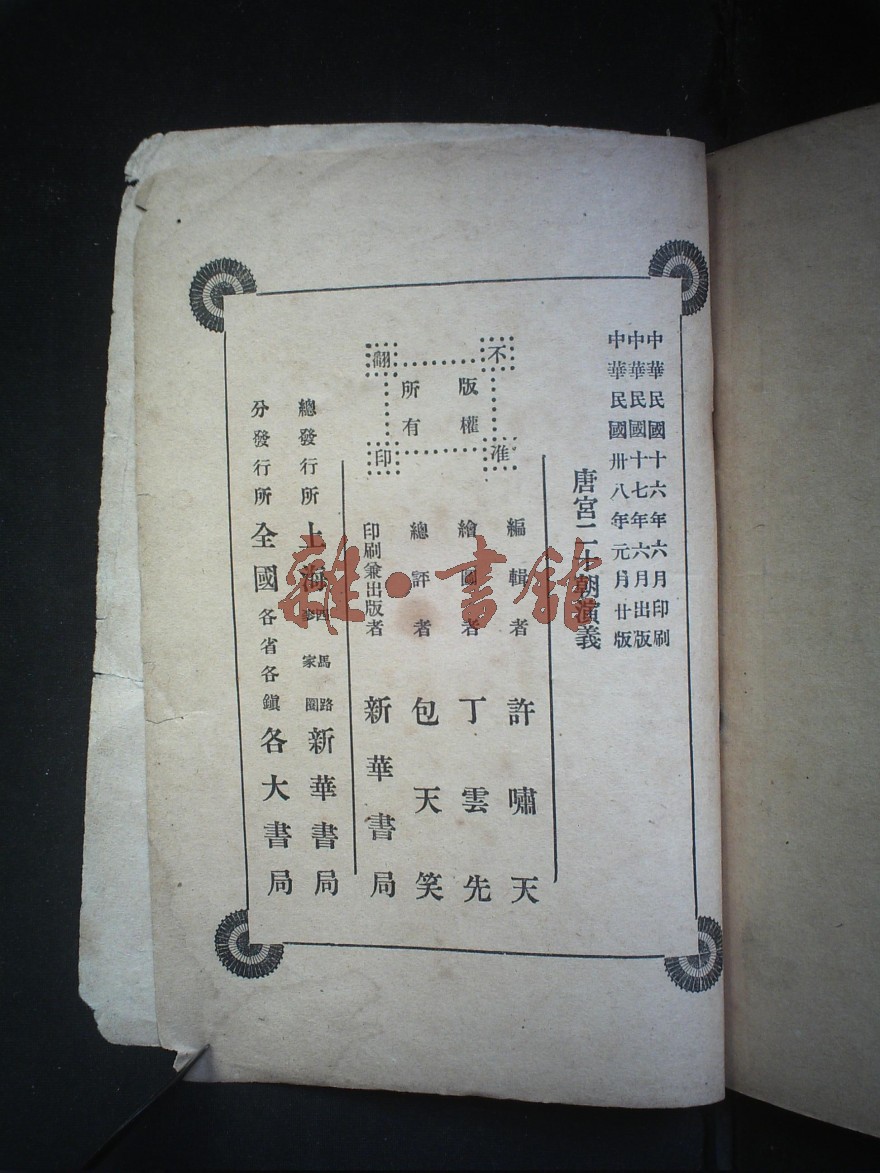 中華民國十六年六月印刷
中華民國十七年六月出版
中華民國卅八年元月廿版
唐宮二十朝演義
不准翻印
版權所有
編輯者 許嘯天
繪圖者 丁雲先
總評者 包天笑
印刷兼出版者 新華書局
總發行所 上海四馬路麥家圈 新華書局
分發行所 全國各省各鎭各大書局
雜·書館